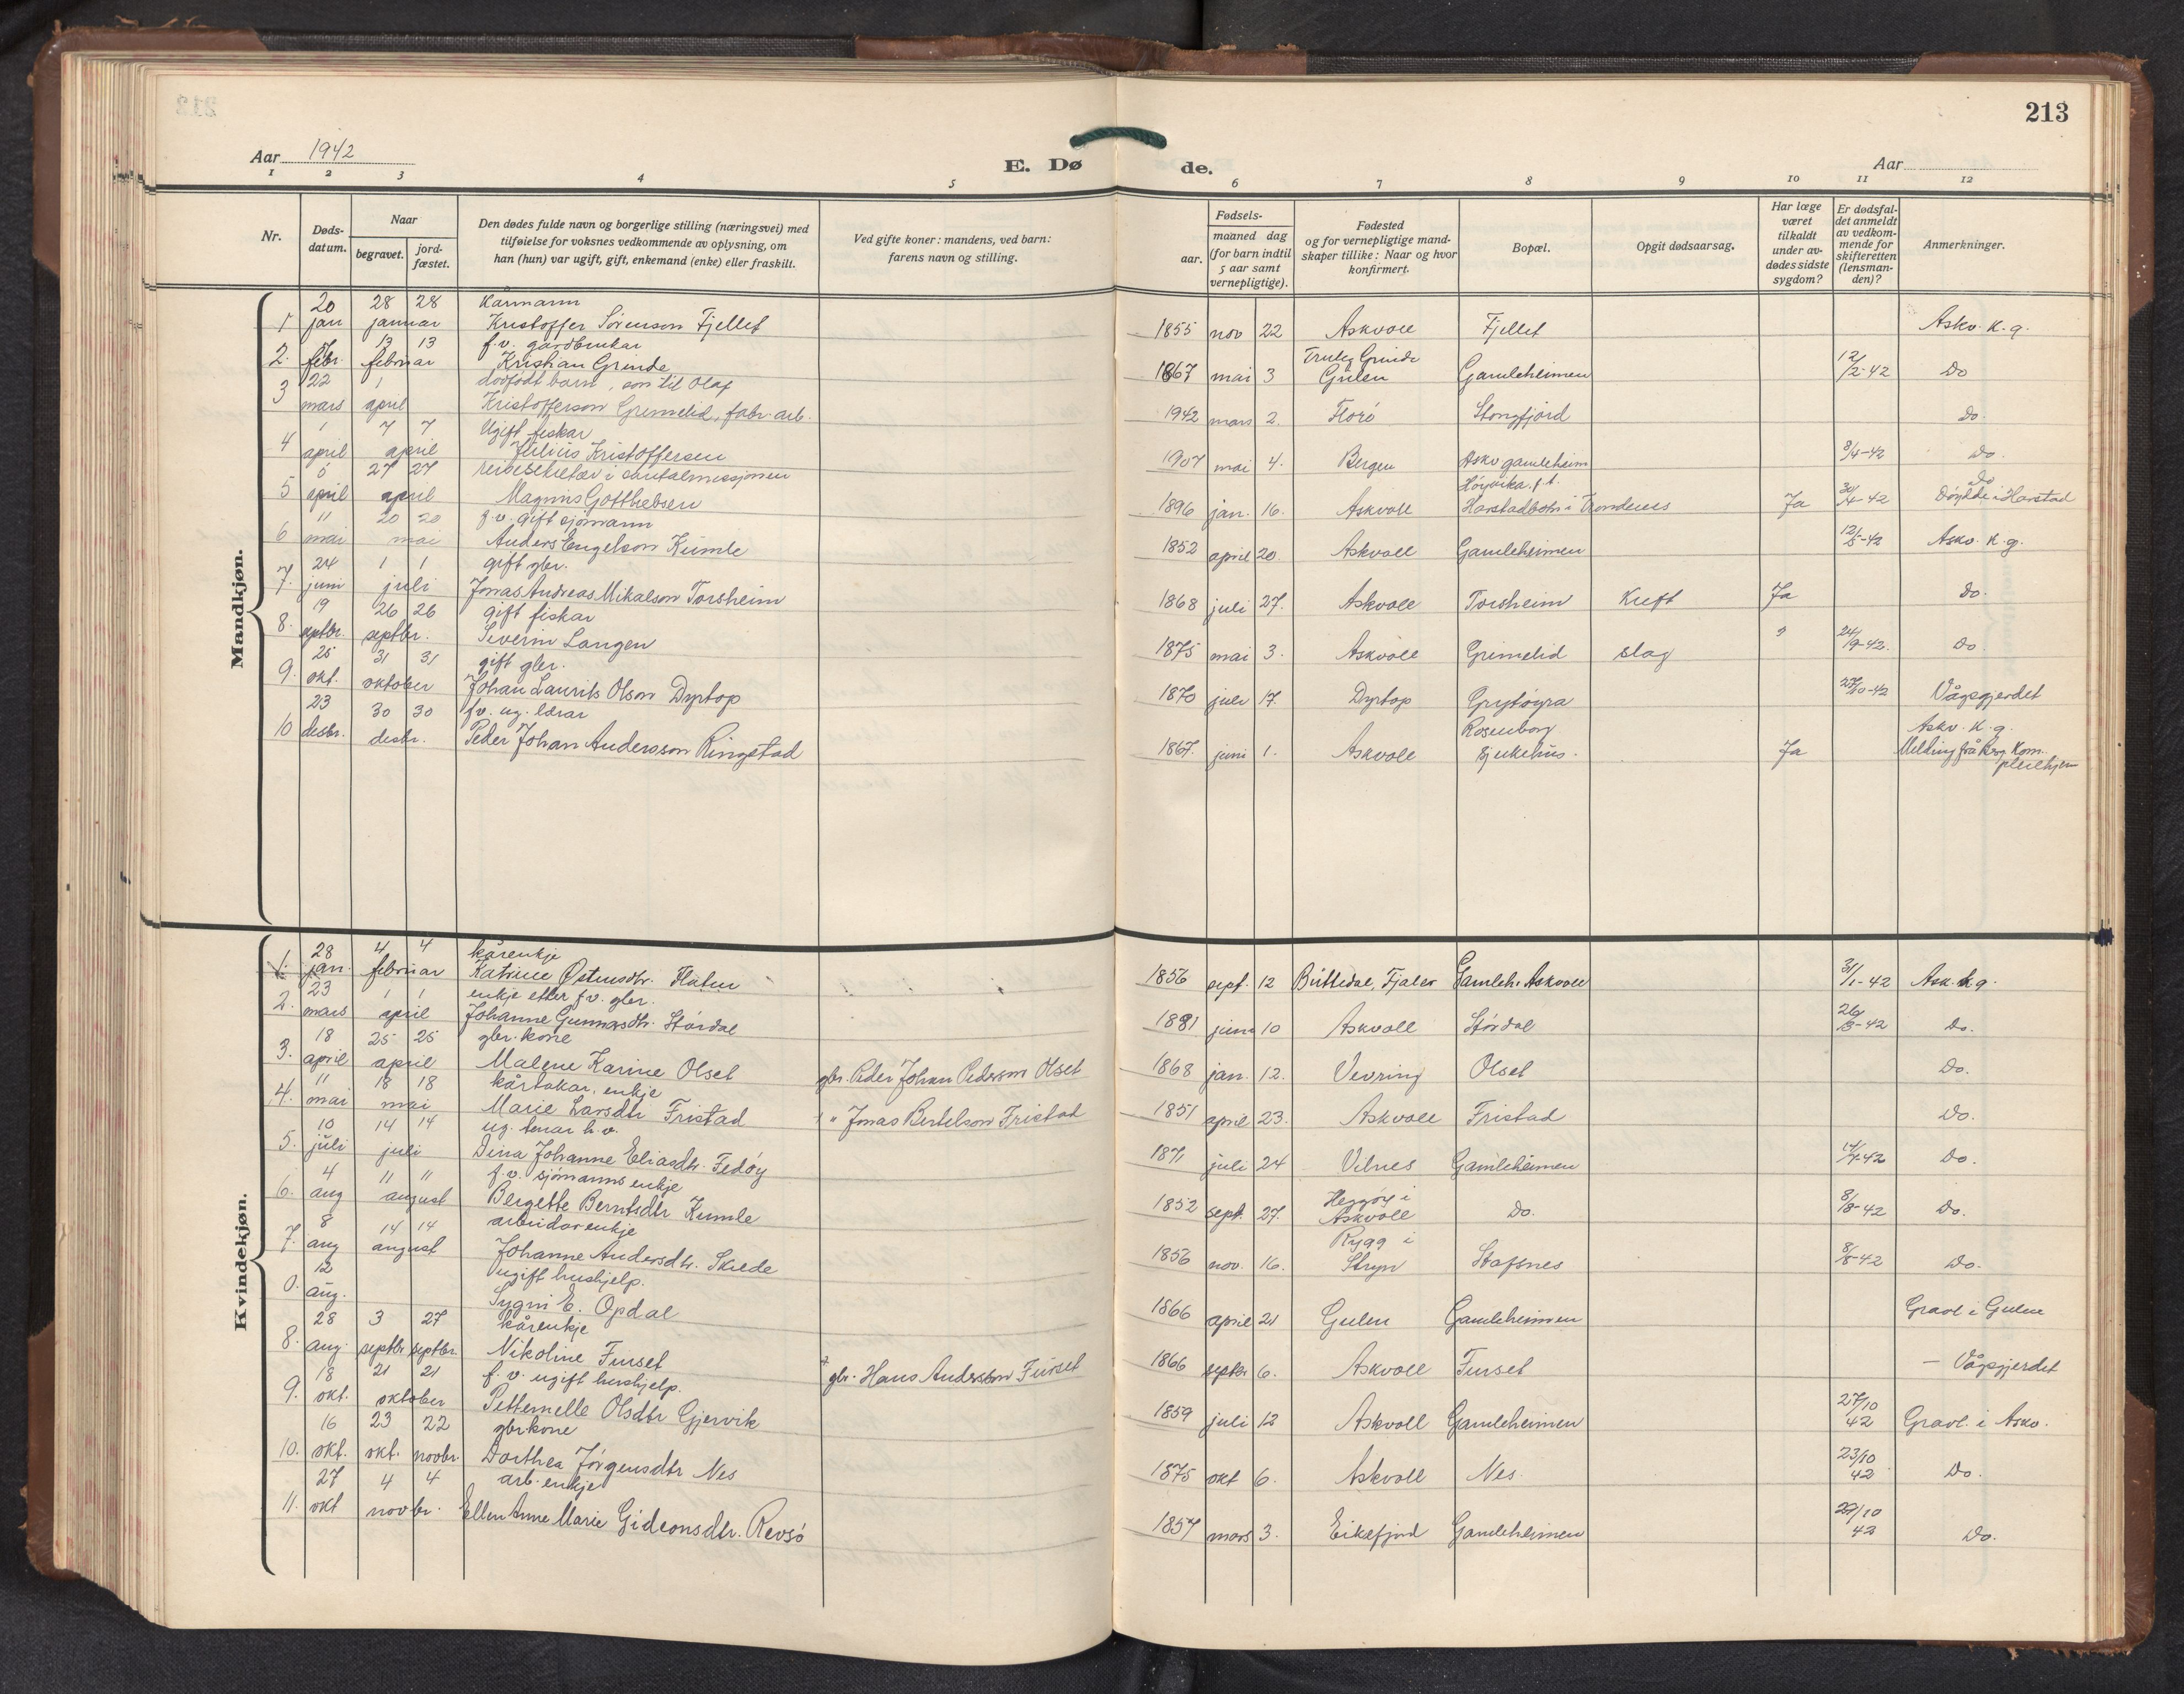 213
Aar 1942
E. Dø de.
Aar
1 2 3 4 5 6 7 8 9 10 11 12
Nr.
Døds-datum.
Naar
begravet.
jord-fæstet.
Den dødes fulde navn og borgerlige stilling (næringsvei) med
tilføielse for voksnes vedkommende av oplysning, om
han (hun) var ugift, gift, enkemand (enke) eller fraskilt.
Ved gifte koner: mandens, ved barn:
farens navn og stilling.
Fødsels-
aar.
maaned dag
(for barn indtil
5 aar samt
vernepligtige).
Fødested
og for vernepligtige mand-
skaper tillike: Naar og hvor
konfirmert.
Bopæl.
Opgit dødsaarsag.
Har læge
været
tilkaldt
under av-
dødes sidste
sygdom?
Er dødsfal-
det anmeldt
av vedkom-
mende for
skifteretten
(lensman-
den)?
Anmerkninger.
Mandkjøn.
20 28 28 Kårmann
1 jan januar Kristoffer Sørenson Fjellet 1855 nov 22 Askvoll Fjellet Askv. k.g.
13 13 f.v. gardbrukar
2. febr. februar Kristian Grinde 1867 mai 3 Truleg Grinde Gulen Gamleheimen 12/2-42 Do
22 1 dødfødt barn, son til Olaf
3 mars april Kristofferson Grimelid, fabr. arb. 1942 mars 2. Florø Stongfjord Do.
1 7 7 Ugift fiskar
4 april april Julius Kristoffersen 1907 mai 4. Bergen Askv gamleheim 8/4-42 Do.
6 27 27 reisesekretær i santalmissjonen
5 april april Magnus Gotthebsen 1896 jan. 16. Askvoll Høyvika f.t. Harstadbotn i Trondenes Ja 30/4-42 Do Døydde i Harstad
11 20 20 f.v. gift sjømann
6 mai mai Anders Engelson Kumle 1852 april 20. Askvoll Gamleheimen 12/5-42 Askv. k.g.
24 1 1 gift gbr.
7. juni juli Jonas Andreas Mikalson Torsheim 1868 juli 27. Askvoll Torsheim Kreft Ja Do.
19 26 26 gift fiskar
8. septbr. septbr. Severin Langen 1875 mai 3. Askvoll Grimelid slag ? 24/9-42. Do
25 31 31 gift gbr.
9. okt. oktober Johan Laurits Olson Dyrtop 1870 juli 17. Dyrtop Grytøyra 27/10-42 Vågsgjerdet
23 30 30 f.v. ug. lærar
10 desbr. desbr. Peder Johan Andersson Ringstad 1867. juni 1. Askvoll Rosenborg sjukehus. Ja Askv. k.g. Melding frå Berg. Kom. pleiehjem
Kvindekjøn.
28 4 4 kårenkje
1. jan. februar Katrine Østensdtr. Flaten 1856 sept. 12 Buttedal, Fjaler Gamleh. Askvoll 31/1-42 Ask. k.g.
23 1 1 enkje etter f.v. gbr.
2. mars april Johanne Gunnarsdtr. Stórdal 1881 juni 10 Askvoll Stórdal 26/3-42 Do.
18 25 25 gbr. kone
3. april april Malene Karine Olset gbr. Peder Johan Pederson Olset 1868 jan. 12. Vevring Olset Do.
11 18 18 kårtakar. enkje
4. mai mai Marie Larsdtr Fristad " Jonas Bertelson Fristad 1851 april 23. Askvoll Fristad Do.
10 14 14 ug. tenar h.v.
5. juli juli Dina Johanne Eliasdtr. Fedøy 1871 juli 24 Vilnes Gamleheimen 14/7-42 Do.
4 11 11 f.v. sjømanns enkje
6. aug august Bergette Berntsdtr Kumle 1852 sept. 27. Heggøy i Askvoll Do. 8/8-42 Do.
8 14 14 arbeidarenkje
7. aug august Johanne Andersdtr. Skilde 1856 nov. 16. Rygg i Stryn Stafsnes 8/8-42 Do.
12 ugift hushjelp.
0. aug. Sygni E. Opdal 1866 april 21 Gulen Gamleheimen Gravl. i Gulen
28 3 27 kårenkje
8. aug. septbr septbr. Nikoline Furset gbr. Hans Anderson Furset 1866 septbr 6. Askvoll Furset — Vågsgjerdet
18 21 21 f.v. ugift hushjelp.
9. okt. oktober Petternelle Olsdtr Gjervik 1859 juli 12 Askvoll Gamleheimen 27/10 42 Gravl. i Askv.
16 23 22 gbrkone
10. okt. okt. novbr Dorthea Jørgensdtr Nes 1875 okt 6. Askvoll Nes. 23/10 42 Do.
27 4 4 arb. enkje
11. okt novbr. Ellen Anne Marie Gideonsdtr. Revsø 1857 mars 3. Eikefjord Gamleheimen 29/10 42 Do.